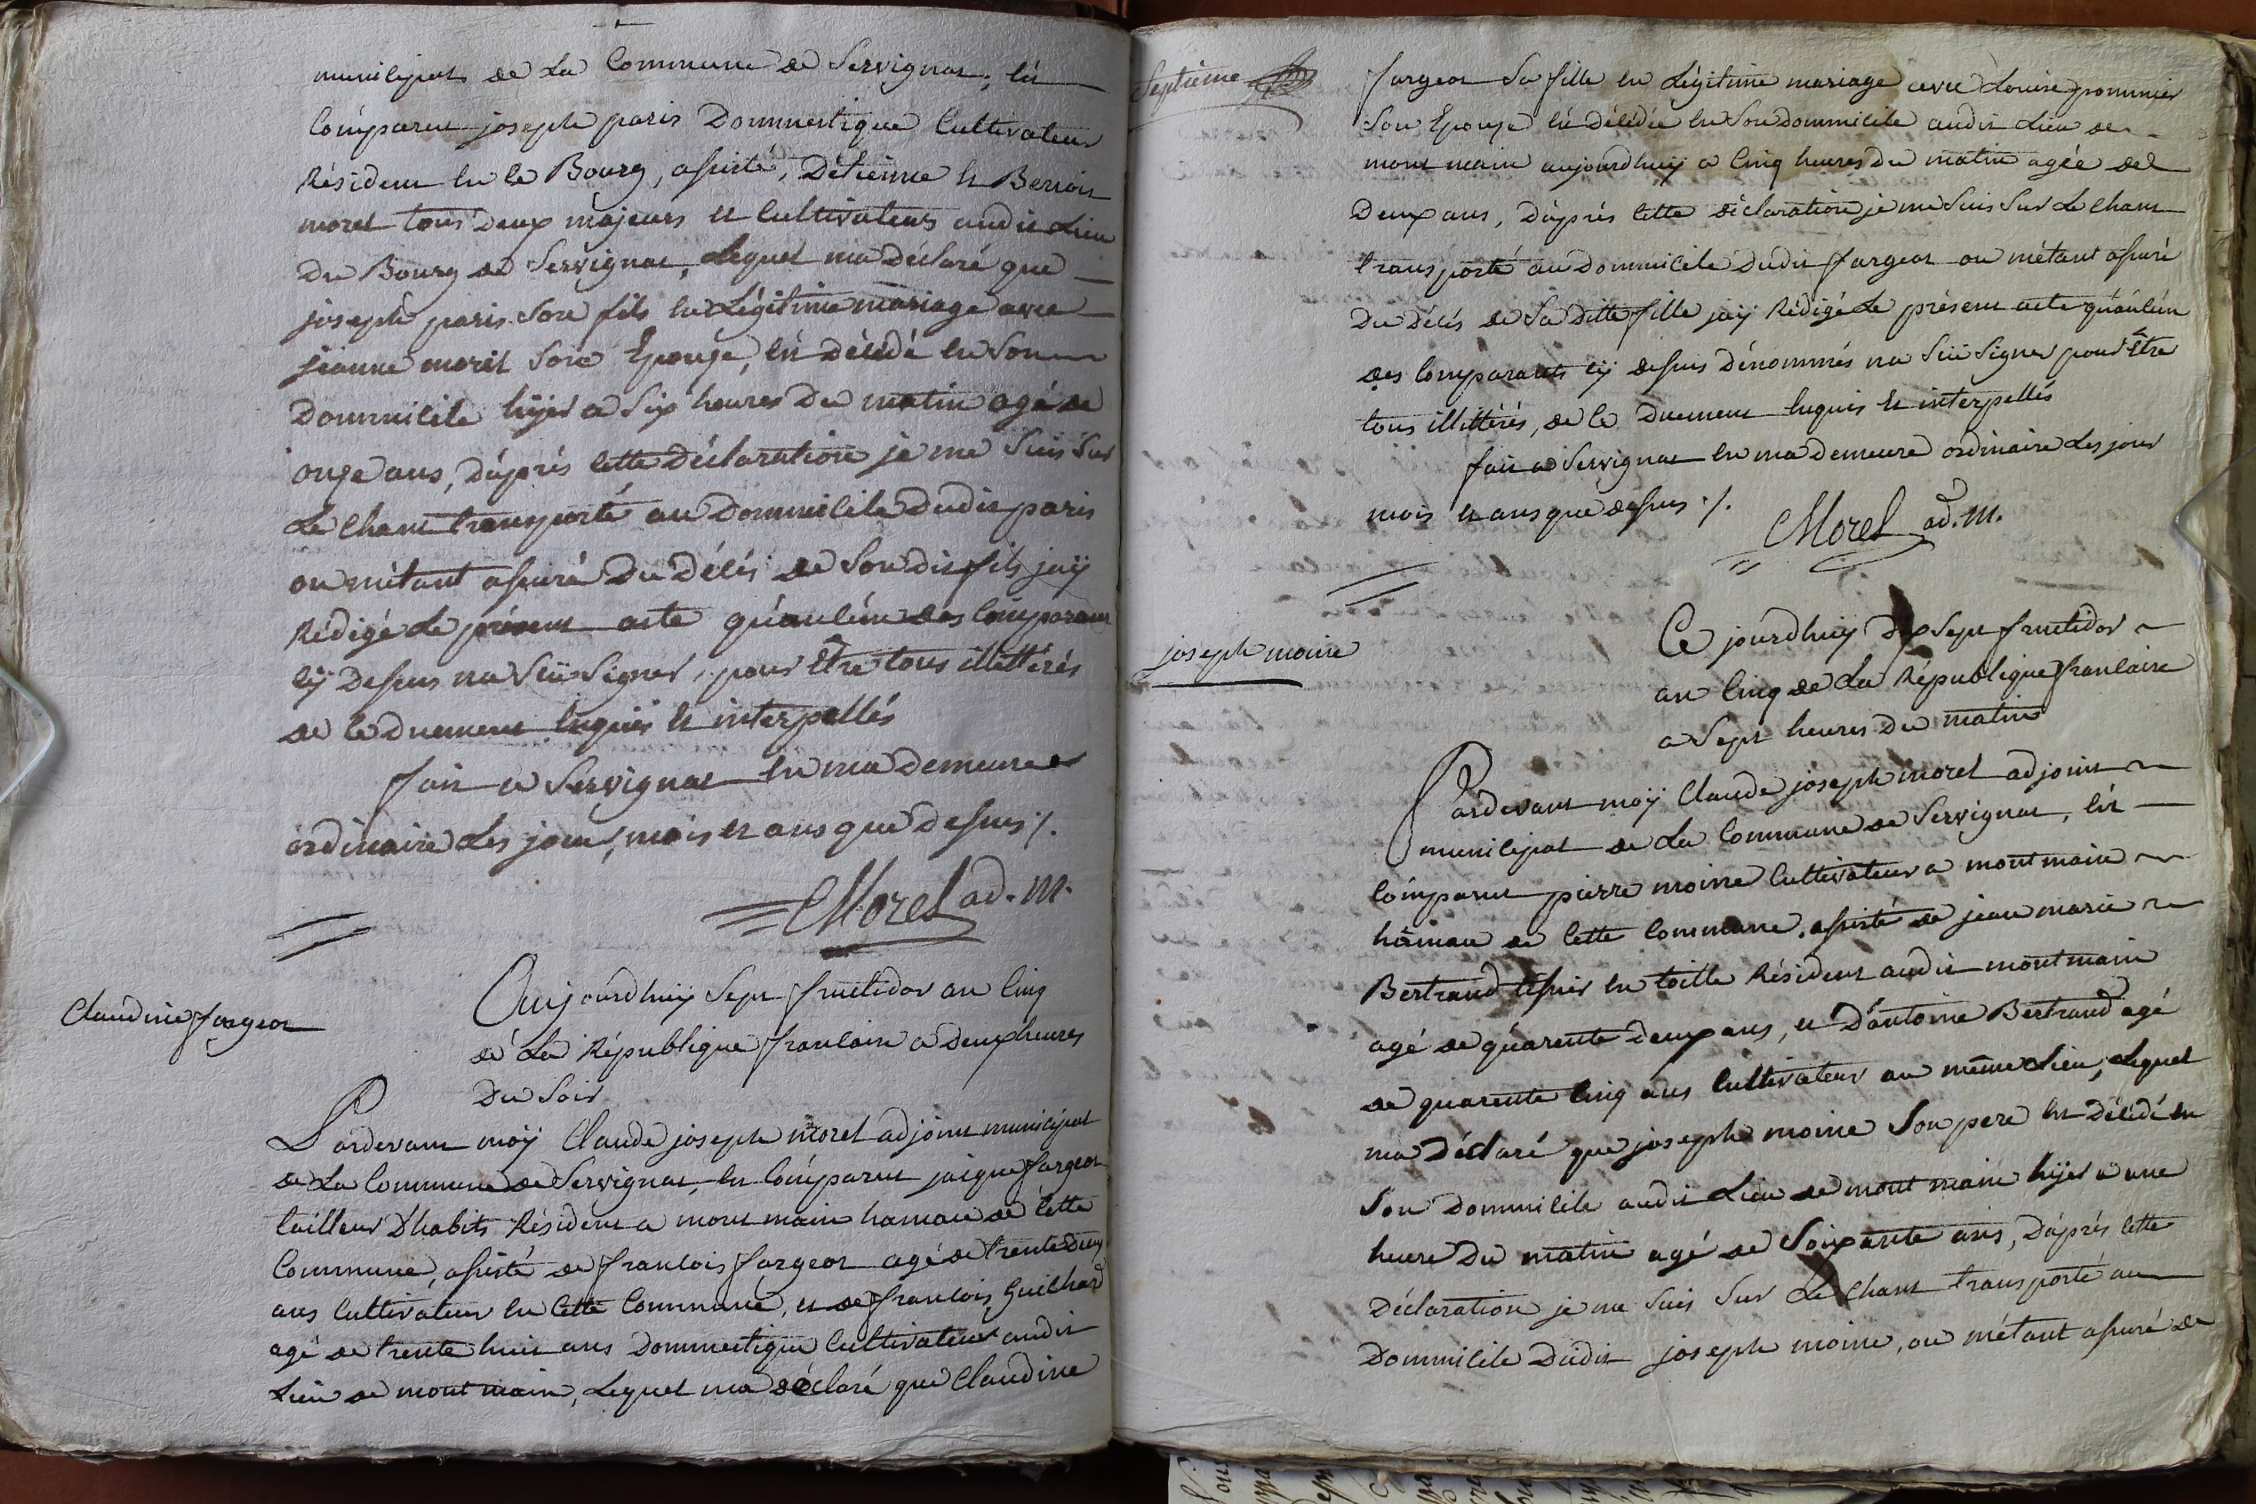 municipat de La Commune de Servignat, ést
Comparut joseph paris Dommestique Cultivateur
Résident en ce Bourg, assisté, Détienne et Benoit
morel tous deux majeurs et Cultivateurs audit Lieu
Du Bourg de Servignat, Lequel ma Déclaré que
joseph paris Son fils en Légitime mariage avec
jéanne morel Son Epouse, ést Décédé en Son
Dommicile hÿer a Six heures Du matin agé de
onze ans, D'après Cette Déclaration je me Suis Sur
Le Chant transporté au Dommicile Dudit paris
ou métant assuré Du Décés de Son dit fils jaÿ
Rédigé Le présent acte qu'aucun des Comparant
Cÿ Dessus na Sçu Signer, pour Être tous illettérés
de Ce Duement Enquis et interpellés
fait a Servignat en ma demeure
ordinaire Les jour, mois et ans que dessus ./.
CMorel ad. m.
Claudine fargeot
Aujourdhuÿ Sept fructidor an Cinq
dé La République francaise a Deux heures
Du Soir
Pardevant moÿ Claude joseph morel adjoint municipat
de La Commune de Servignat, est Comparut jaique fargeot
tailleur D'habits Résident a mont main hamau de Cette
Commune, assisté de francois fargeot agé de trente Deux
ans Cultivateur en Cette Commune, et de francois Guilhard
agé de trente huit ans Dommestique Cultivateur audit
Lieu de mont main, Lequel ma déclaré que Claudine
Septième
fargeot Sa fille en Légitime mariage avec Louise pommier
Son Epouse ést Décédée en Son Dommicile audit Lieu de
mont main aujourdhuÿ a Cinq heures Du matin agée de
Deux ans, D'après Cette déclaration je me Suis Sur Le Chant
transporté au Dommicile Dudit fargeot ou métant assuré
Du Décés de Sa Ditte fille jaÿ Rédigé Le présent acte qu'aucun
des Comparants cÿ dessus Dénommés na Sçu Signer pour Être
tous illittérés, de Ce Duement Enquis et interpellés
fait a Servignat en ma demeure ordinaire Les jour
mois et ans que dessus ./.
CMorel ad. m.
joseph moine
Ce jourdhuÿ Dix Sept fructidor
an Cinq de La République francaise
a Sept heures Du matin
Pardevant moÿ Claude joseph morel adjoint
municipat de La Commune de Servignat, ést
Comparut pierre moine Cultivateur a mont main
hâmau de Cette Commune, assisté de jean marie
Bertrand tissier en toille Résident audit mont main
agé de quarente deux ans, et D'antoine Bertrand agé
de quarente Cinq ans Cultivateur au même Lieu, Lequel
ma Déclaré que joseph moine Son pere est Décédé en
Son Dommicile audit Lieu de mont main hÿer a une
heure Du matin agé de Soixante ans, D'après Cette
Déclaration je me Suis Sur Le Chant transporté au
Dommicile Dudit joseph moine, ou métant assuré de